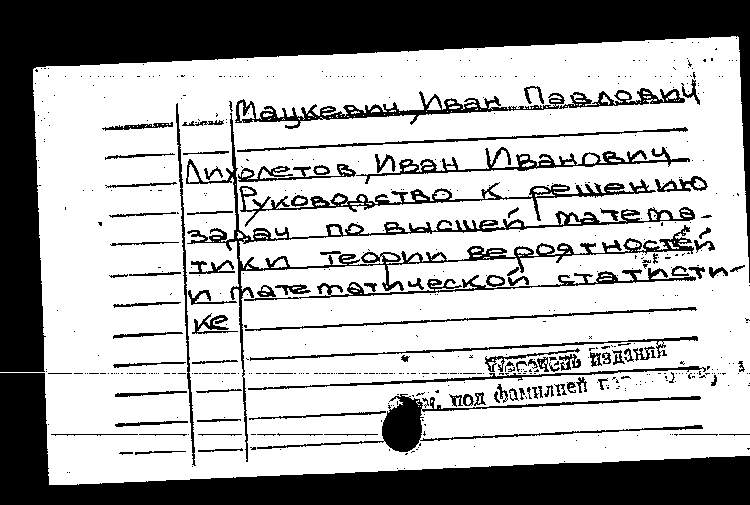 Мацкевич, Иван Павлович
Лихолетов, Иван Иванович
Руководство к решению
задач по высшей матема-
тики теории вероятностей
и математической статисти-
ке
Перечень изданий
см. под фамилией